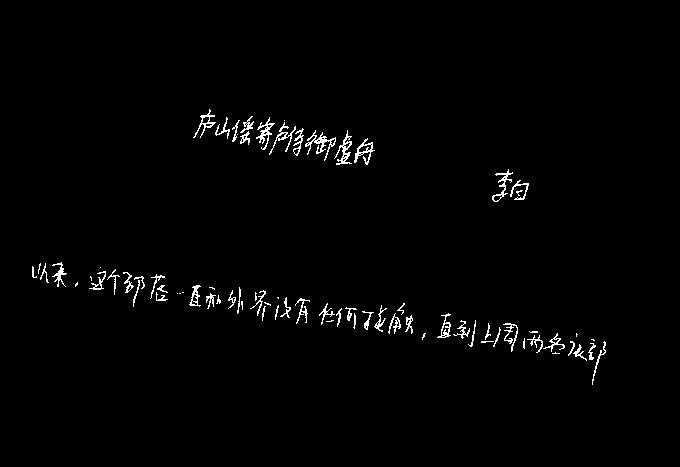 庐山谣寄卢侍御虚舟
李白
以来，这个部落一直和外界没有任何接触，直到上周两名该部